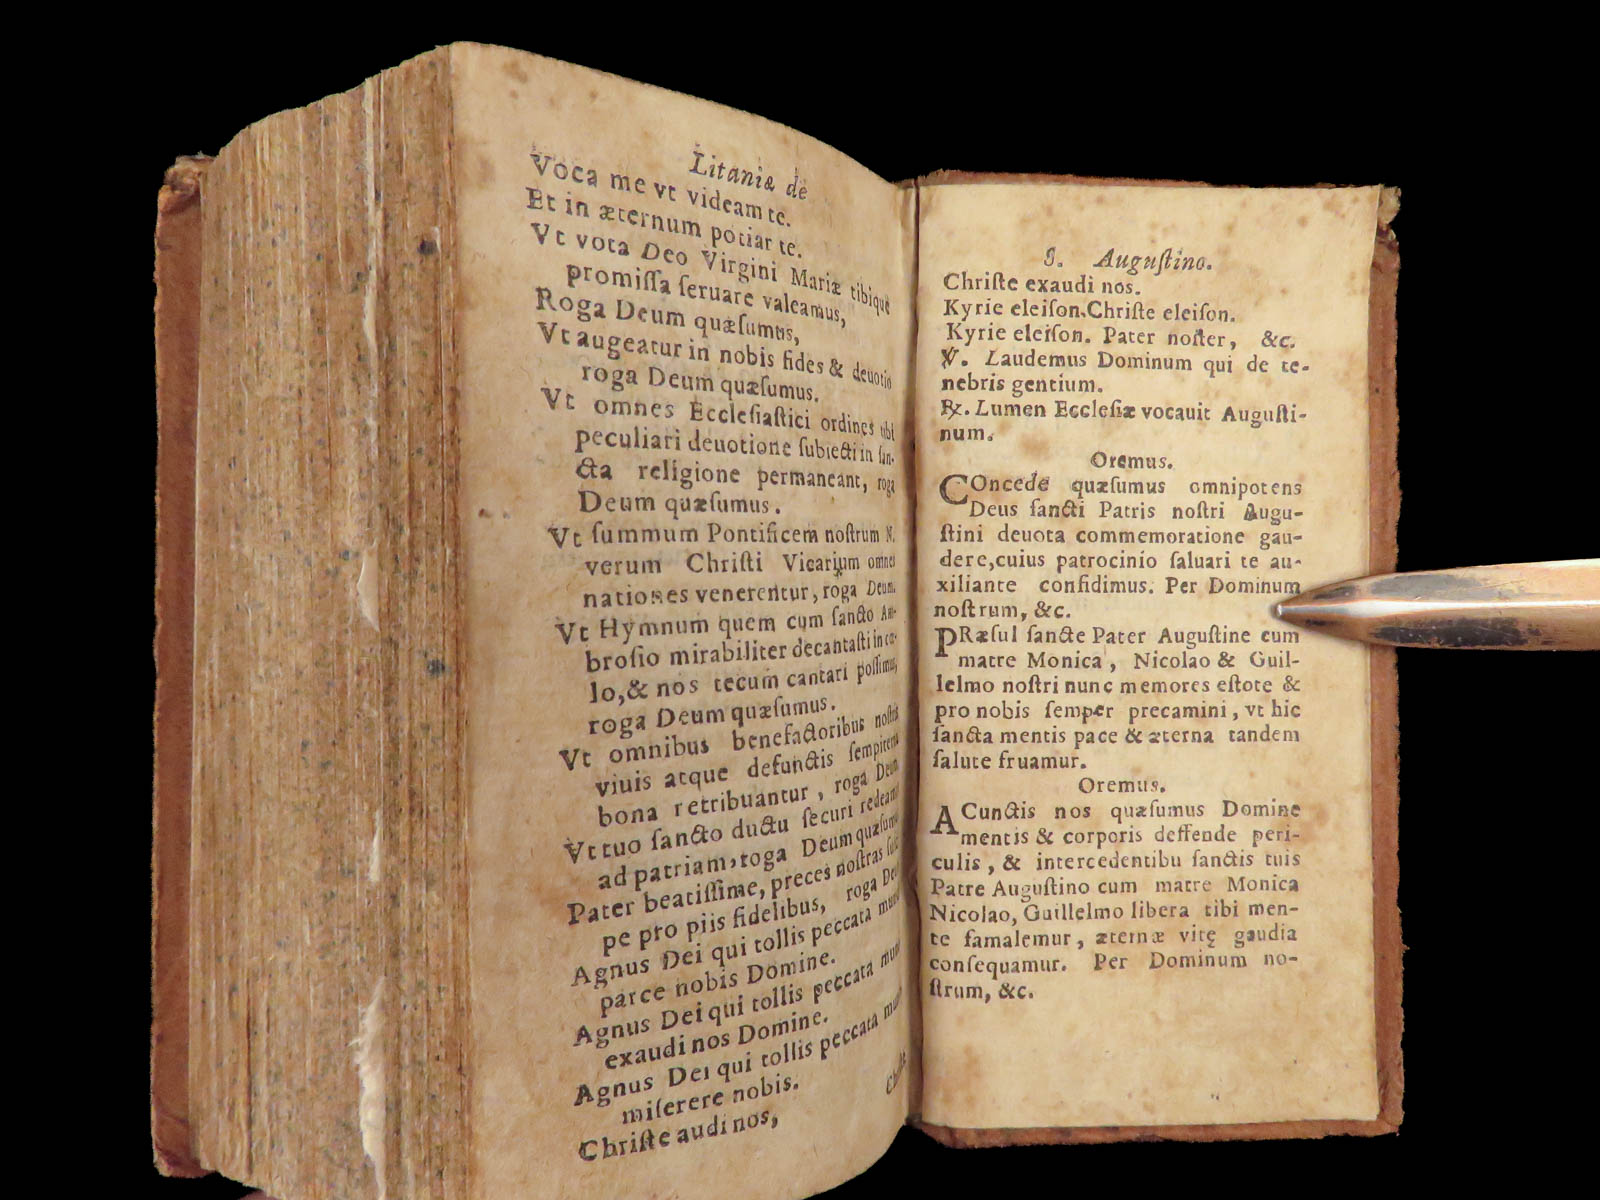 Litaniæ de
Voca me vt videam te.
Et in æternum potiar te.
Vt vota Deo Virgini Mariæ tibique
promiſſa ſeruare valeamus,
Roga Deum quæſumus,
Vt augeatur in nobis fides & deuotio
roga Deum quæſumus.
Vt omnes Eccleſiaſtici ordines tibi
peculiari deuotione ſubiecti in ſan-
cta religione permaneant, roga
Deum quæſumus.
Vt ſummum Pontificem noſtrum N.
verum Chriſti Vicarium omnes
nationes venerentur, roga Deum.
Vt Hymnum quem cum ſancto Am-
broſio mirabiliter decantaſti in cœ-
lo, & nos tecum cantari poſſimus,
roga Deum quæſumus.
Vt omnibus benefactoribus noſtris
viuis atque defunctis ſempiterna
bona retribuantur, roga Deum
Vt tuo ſancto ductu ſecuri redeamus
ad patriam, roga Deum quæſumus
Pater beatiſſime, preces noſtras ſuſci
pe pro piis fidelibus, roga Deum
Agnus Dei qui tollis peccata mundi
parce nobis Domine.
Agnus Dei qui tollis peccata mundi
exaudi nos Domine.
Agnus Dei qui tollis peccata mundi
miſerere nobis.
Chriſte audi nos,
Chriſte
S. Auguſtino.
Chriſte exaudi nos.
Kyrie eleiſon. Chriſte eleiſon.
Kyrie eleiſon. Pater noſter, &c.
℣. Laudemus Dominum qui de te-
nebris gentium.
℞. Lumen Eccleſiæ vocauit Auguſti-
num.
Oremus.
COncede quæſumus omnipotens
Deus ſancti Patris noſtri Augu-
ſtini deuota commemoratione gau-
dere, cuius patrocinio ſaluari te au-
xiliante confidimus. Per Dominum
noſtrum, &c.
PRæſul ſancte Pater Auguſtine cum
matre Monica, Nicolao & Guil-
lelmo noſtri nunc memores eſtote &
pro nobis ſemper precamini, vt hic
ſancta mentis pace & æterna tandem
ſalute fruamur.
Oremus.
A Cunctis nos quæſumus Domine
mentis & corporis deffende peri-
culis, & intercedentibu ſanctis tuis
Patre Auguſtino cum matre Monica
Nicolao, Guillelmo libera tibi men-
te famalemur, æternæ vitę gaudia
conſequamur. Per Dominum no-
ſtrum, &c.